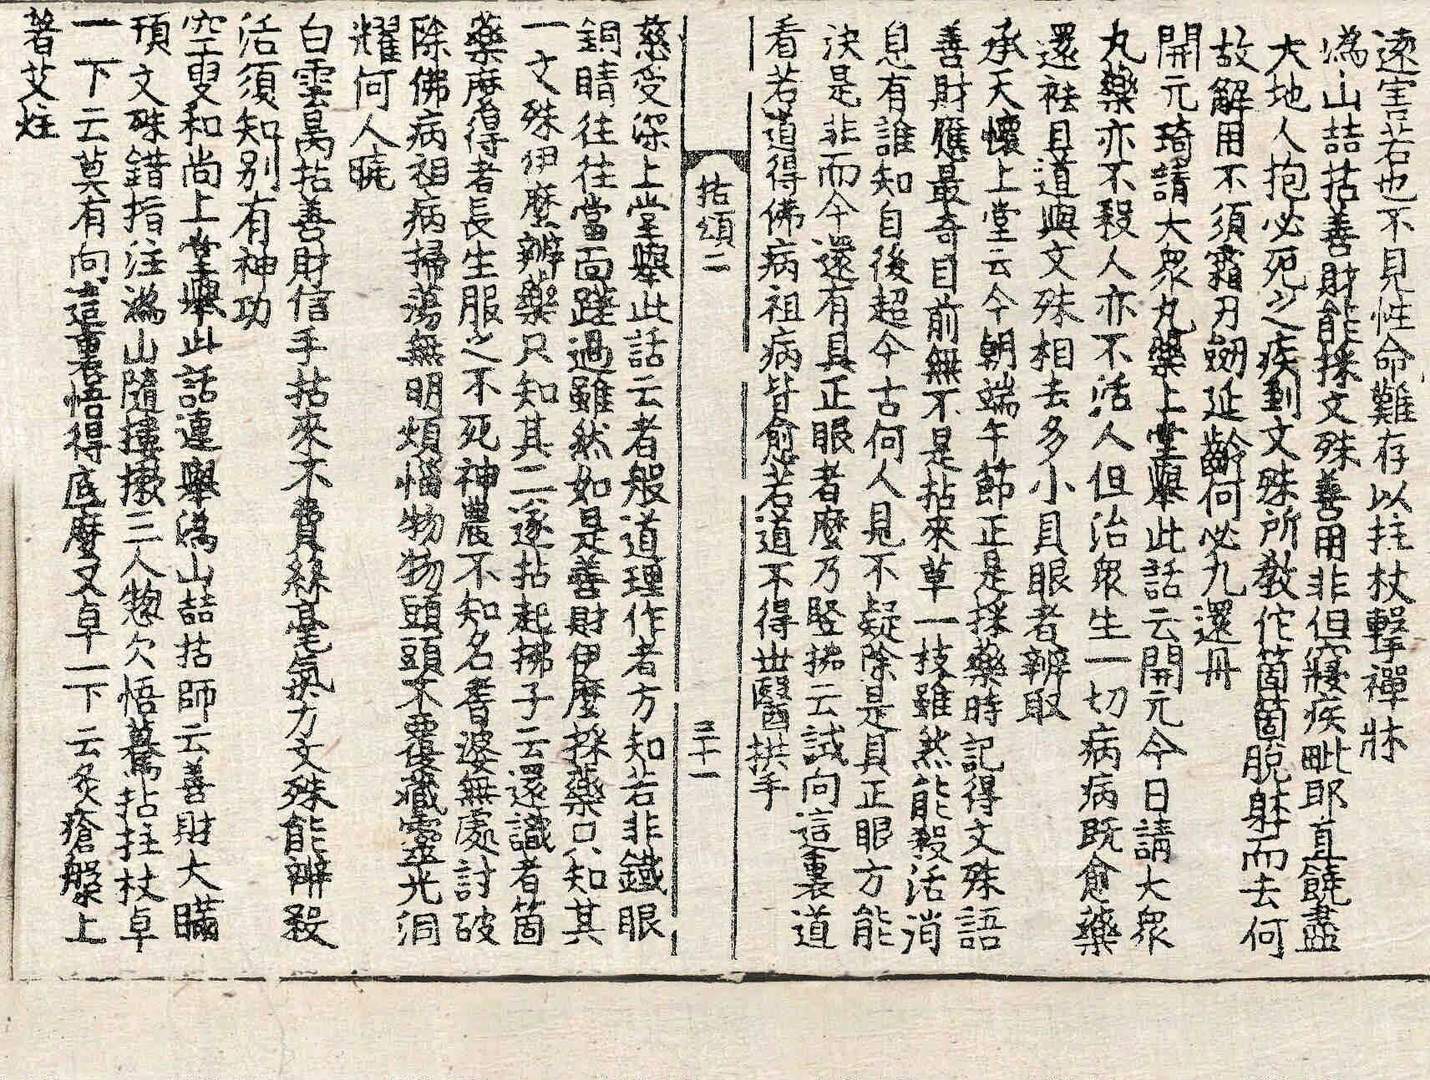 遠害若也不見性命難存以拄杖擊禪牀
潙山喆拈善財能採文殊善用非但寢疾毗耶直饒盡
大地人抱必死之疾到文殊所敎伱箇箇脫躰而去何
故解用不須霜刃劒延齡何必九還丹
開元琦請大衆丸藥上堂擧此話云開元今日請大衆
丸藥亦不殺人亦不活人但治衆生一切病病旣愈藥
還祛且道與文殊相去多小具眼者辨取
承天懷上堂云今朝端午節正是採藥時記得文殊語
善財應最奇目前無不是拈來草一枝雖然能殺活消
息有誰知自後超今古何人見不疑除是具正眼方能
決是非而今還有具正眼者麼乃竪拂云試向這裏道
看若道得佛病祖病皆愈若道不得世醫拱手
拈頌二
三十一
慈受深上堂擧此話云者般道理作者方知若非鐵眼
銅睛往往當面蹉過雖然如是善財伊麼採藥只知其
一文殊伊麼辨藥只知其二遂拈起拂子云還識者箇
藥麽者長生服之不死神農不知名耆婆無處討破
除佛病祖病掃蕩無明煩惱物物頭頭不覆藏靈光洞
耀何人曉
白雲昺拈善財信手拈來不費絲毫氣力文殊能辨殺
活須知別有神功
空叟和尚上堂擧此話連擧潙山喆拈師云善財大瞞
頇文殊錯指注潙山隨摟摗三人惣欠悟驀拈拄杖卓
一下云莫有向這裏悟得底麼又卓一下云灸瘡瘢上
著艾炷